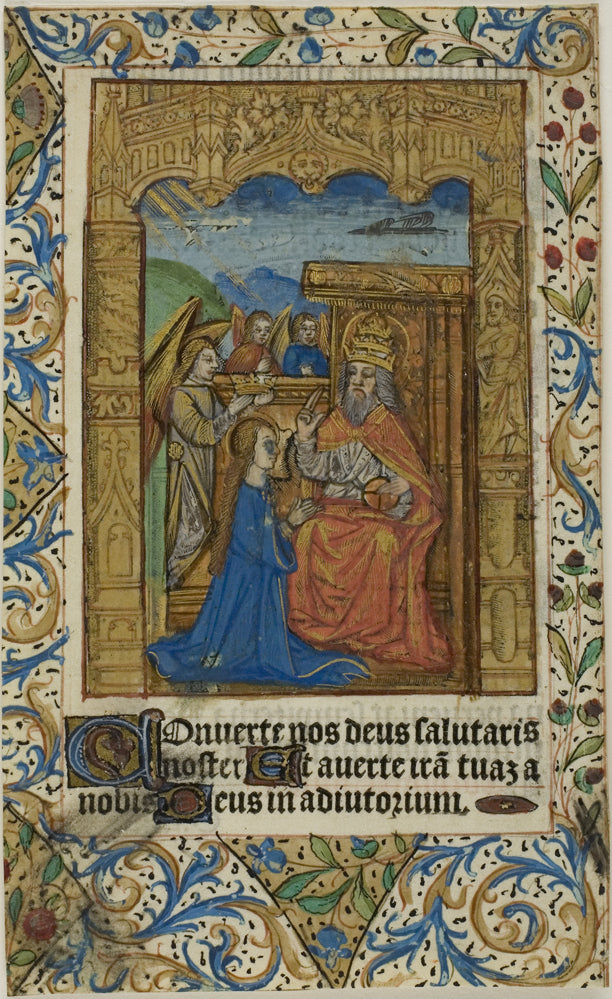 COnuerte nos deus salutaris
noster Et auerte irã tuaʒ a
nobis Deus in adiutorium.